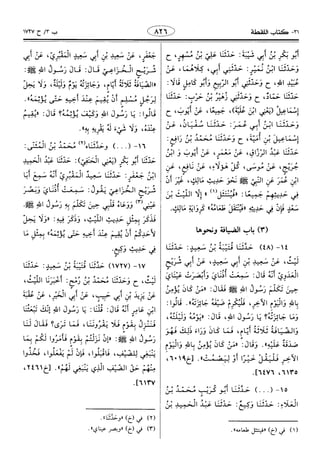 ٣١- كتاب اللقطة
٨٢٦
ب ٣/ ح ١٧٢٧
أَبُو بَكْرِ بْنُ أَبِي شَيْبَةَ: حَدَّثَنَا عَلِيُّ بْنُ مُسْهِرٍ، ح
وَحَدَّثَنَا ابْنُ نُمَيْرٍ: حَدَّثَنِي أَبِي، كِلَاهُمَا، عَنْ
عُبَيْدِ اللهِ، ح وَحَدَّثَنِي أَبُو الرَّبِيعِ وَأَبُو كَامِلٍ قَالَا:
حَدَّثَنَا حَمَّادٌ، ح وَحَدَّثَنِي زُهَيْرُ بْنُ حَرْبٍ: حَدَّثَنَا
إِسْمَاعِيلُ [يَعْنِي ابْنَ عُلَيَّةَ]، جَمِيعًا، عَنْ أَيُّوبَ، ح
وَحَدَّثَنَا ابْنُ أَبِي عُمَرَ: حَدَّثَنَا سُفْيَانُ، عَنْ
إِسْمَاعِيلَ بْنِ أُمَيَّةَ، ح وَحَدَّثَنَا مُحَمَّدُ بْنُ رَافِعٍ:
حَدَّثَنَا عَبْدُ الرَّزَّاقِ، عَنْ مَعْمَرٍ، عَنْ أَيُّوبَ وَ ابْنِ
جُرَيْجٍ، عَنْ مُوسَى، كُلُّ هَؤُلَاءِ، عَنْ نَافِعٍ، عَنِ
ابْنِ عُمَرَ عَنِ النَّبِيِّ ﷺ نَحْوَ حَدِيثِ مَالِكٍ، غَيْرَ أَنَّ
فِي حَدِيثِهِمْ جَمِيعًا: «فَيُنْتَثَلَ»(١) إِلَّا اللَّيْثَ بْنَ
سَعْدٍ فَإِنَّ فِي حَدِيثِهِ «فَيُنْتَقَلَ طَعَامُهُ» كَرِوَايَةِ مَالِكٍ.
(٣) باب الضيافة ونحوها
١٤- (٤٨) حَدَّثَنَا قُتَيْبَةُ بْنُ سَعِيدٍ: حَدَّثَنَا
لَيْثٌ، عَنْ سَعِيدِ بْنِ أَبِي سَعِيدٍ، عَنْ أَبِي شُرَيْحٍ
الْعَدَوِيِّ أَنَّهُ قَالَ: سَمِعَتْ أُذُنَايَ وَأَبْصَرَتْ عَيْنَايَ
حِينَ تَكَلَّمَ رَسُولُ اللهِ ﷺ فَقَالَ: «مَنْ كَانَ يُؤْمِنُ
بِاللهِ وَالْيَوْمِ الْآخِرِ، فَلْيُكْرِمْ ضَيْفَهُ جَائِزَتَهُ». قَالُوا:
وَمَا جَائِزَتُهُ؟ يَا رَسُولَ اللهِ! قَالَ: «يَوْمُهُ وَلَيْلَتُهُ،
وَالضِّيَافَةُ ثَلَاثَةُ أَيَّامٍ، فَمَا كَانَ وَرَاءَ ذَلِكَ فَهُوَ
صَدَقَةٌ عَلَيْهِ». وَقَالَ: «مَنْ كَانَ يُؤْمِنُ بِاللهِ وَالْيَوْمِ
الْآخِرِ فَلْيَقُلْ خَيْرًا أَوْ لِيَصْمُتْ». [خ ٦٠١٩،
٦١٣٥، ٦٤٧٦].
١٥- (...) حَدَّثَنَا أَبُو كُرَيْبٍ مُحَمَّدُ بْنُ
الْعَلَاءِ: حَدَّثَنَا وَكِيعٌ: حَدَّثَنَا عَبْدُ الْحَمِيدِ بْنُ
(١) في (خ) «فينتثل طعامه».
جَعْفَرٍ، عَنْ سَعِيدِ بْنِ أَبِي سَعِيدٍ الْمَقْبُرِيِّ، عَنْ أَبِي
شُرَيْحٍ الْخُزَاعِيِّ قَالَ: قَالَ رَسُولُ اللهِ ﷺ:
«الضِّيَافَةُ ثَلَاثَةُ أَيَّامٍ، وَجَائِزَتُهُ يَوْمٌ وَلَيْلَةٌ، وَلَا يَحِلُّ
لِرَجُلٍ مُسْلِمٍ أَنْ يُقِيمَ عِنْدَ أَخِيهِ حَتَّى يُؤْثِمَهُ».
قَالُوا: يَا رَسُولَ اللهِ! وَكَيْفَ يُؤْثِمُهُ؟ قَالَ: «يُقِيمُ
عِنْدَهُ، وَلَا شَيْءَ لَهُ يَقْرِيهِ بِهِ».
١٦- (...) وَحَدَّثَنَا(٢) مُحَمَّدُ بْنُ الْمُثَنَّى:
حَدَّثَنَا أَبُو بَكْرٍ [يَعْنِي الْحَنَفِيَّ]: حَدَّثَنَا عَبْدُ الْحَمِيدِ
ابْنُ جَعْفَرٍ: حَدَّثَنَا سَعِيدٌ الْمَقْبُرِيُّ أَنَّهُ سَمِعَ أَبَا
شُرَيْحٍ الْخُزَاعِيَّ يَقُولُ: سَمِعَتْ أُذُنَايَ وَبَصُرَ
عَيْنِي(٣) وَوَعَاهُ قَلْبِي حِينَ تَكَلَّمَ بِهِ رَسُولُ اللهِ ﷺ.
فَذَكَرَ بِمِثْلِ حَدِيثِ اللَّيْثِ، وَذَكَرَ فِيهِ: «وَلَا يَحِلُّ
لِأَحَدِكُمْ أَنْ يُقِيمَ عِنْدَ أَخِيهِ حَتَّى يُؤْثِمَهُ» بِمِثْلِ مَا
فِي حَدِيثِ وَكِيعٍ.
١٧- (١٧٢٧) حَدَّثَنَا قُتَيْبَةُ بْنُ سَعِيدٍ: حَدَّثَنَا
لَيْثٌ، ح وَحَدَّثَنَا مُحَمَّدُ بْنُ رُمْحٍ: أَخْبَرَنَا اللَّيْثُ،
عَنْ يَزِيدَ بْنِ أَبِي حَبِيبٍ، عَنْ أَبِي الْخَيْرِ، عَنْ عُقْبَةَ
ابْنِ عَامِرٍ أَنَّهُ قَالَ: قُلْنَا: يَا رَسُولَ اللهِ! إِنَّكَ تَبْعَثُنَا
فَنَنْزِلُ بِقَوْمٍ فَلَا يَقْرُونَنَا، فَمَا تَرَى؟ فَقَالَ لَنَا
رَسُولُ اللهِ ﷺ: «إِنْ نَزَلْتُمْ بِقَوْمٍ فَأَمَرُوا لَكُمْ بِمَا
يَنْبَغِي لِلضَّيْفِ، فَاقْبَلُوا، فَإِنْ لَمْ يَفْعَلُوا، فَخُذُوا
مِنْهُمْ حَقَّ الضَّيْفِ الَّذِي يَنْبَغِي لَهُمْ». [خ ٢٤٦١،
٦١٣٧].
(٢) في (خ) «وحدثناه».
(٣) في (خ) «وبصر عيناي».